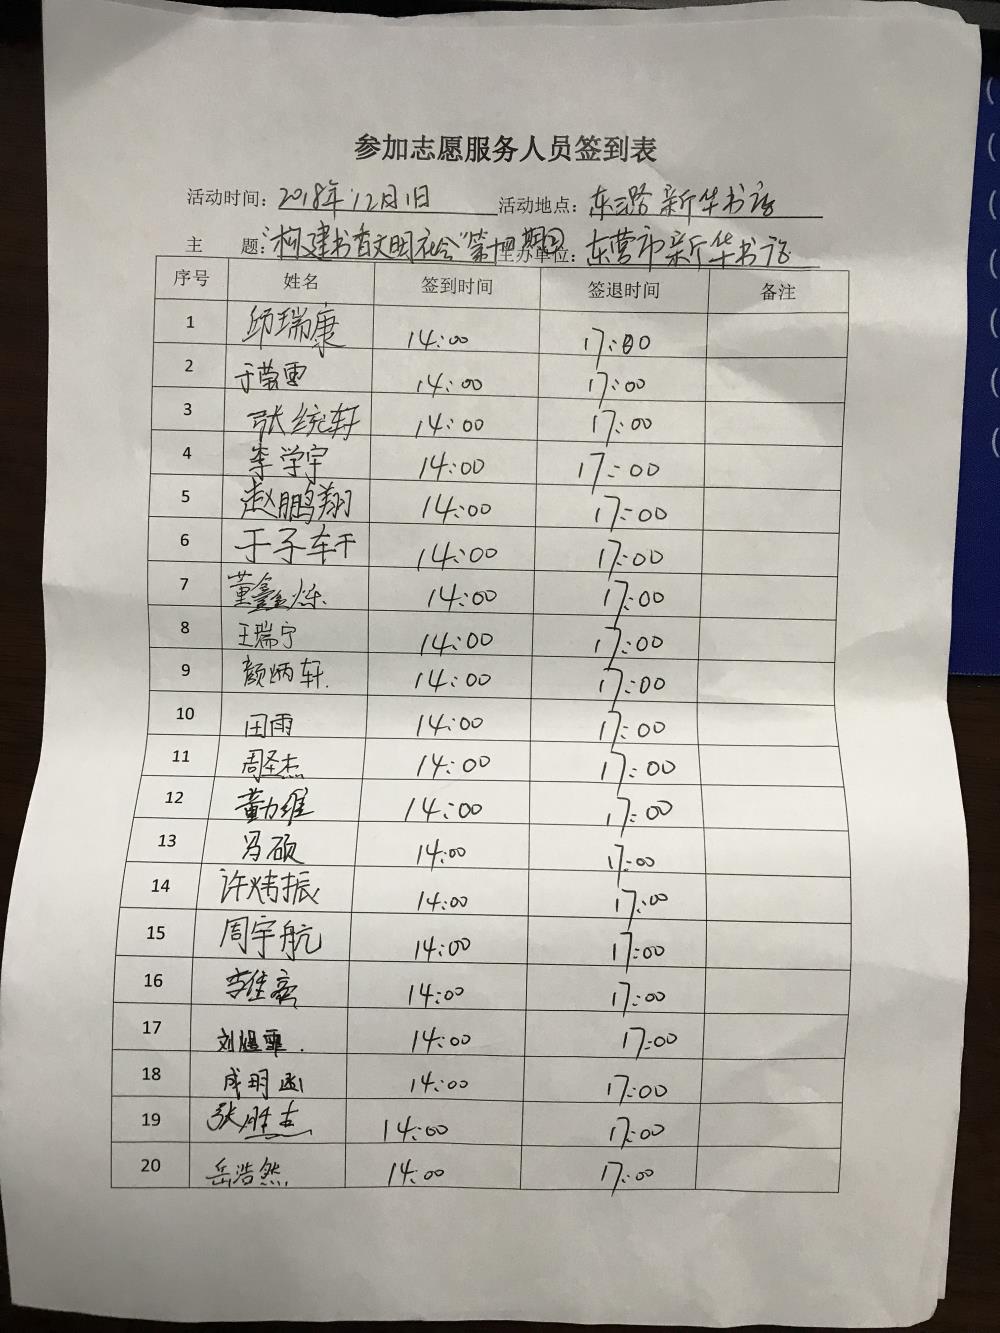 参加志愿服务人员签到表
活动时间：2018年12月1日 活动地点：东三路新华书店
主 题："构建书香文明社会"第十四期 主办单位：东营市新华书店
序号 姓名 签到时间 签退时间 备注
1 邱瑞康 14:00 17:00
2 于莹雪 14:00 17:00
3 张统轩 14:00 17:00
4 李学宇 14:00 17:00
5 赵鹏翔 14:00 17:00
6 于子轩 14:00 17:00
7 董鑫烁 14:00 17:00
8 王瑞宁 14:00 17:00
9 颜炳轩 14:00 17:00
10 田雨 14:00 17:00
11 周圣杰 14:00 17:00
12 董力维 14:00 17:00
13 冯硕 14:00 17:00
14 许炜振 14:00 17:00
15 周宇航 14:00 17:00
16 14:00 17:00
17 14:00 17:00
18 成玥函 14:00 17:00
19 张胜志 14:00 17:00
20 岳浩然 14:00 17:00